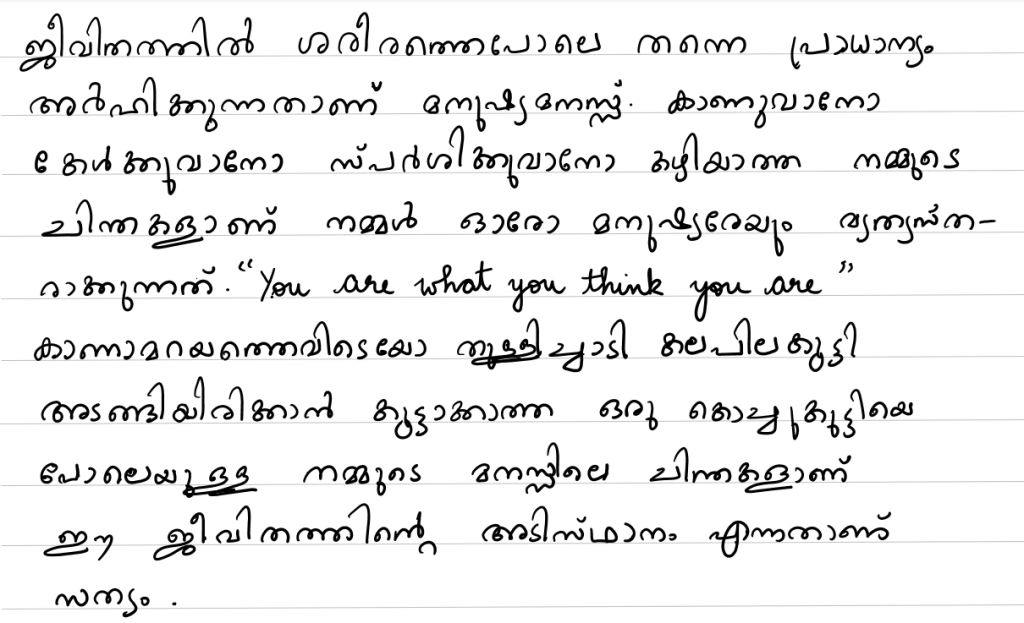 ജീവിതത്തിൽ ശരീരത്തെപോലെ തന്നെ പ്രാധാന്യം
അർഹിക്കുന്നതാണ് മനുഷ്യമനസ്സ്. കാണുവാനോ
കേൾക്കുവാനോ സ്പർശിക്കുവാനോ കഴിയാത്ത നമ്മുടെ
ചിന്തകളാണ് നമ്മൾ ഓരോ മനുഷ്യരേയും വ്യത്യസ്ത-
രാക്കുന്നത്. “You are what you think you are”
കാണാമറയത്തെവിടെയോ തുള്ളിച്ചാടി കലപിലകൂട്ടി
അടങ്ങിയിരിക്കാൻ കൂട്ടാക്കാത്ത ഒരു കൊച്ചുകുട്ടിയെ
പോലെയുള്ള നമ്മുടെ മനസ്സിലെ ചിന്തകളാണ്
ഈ ജീവിതത്തിന്റെ അടിസ്ഥാനം എന്നതാണ്
സത്യം.